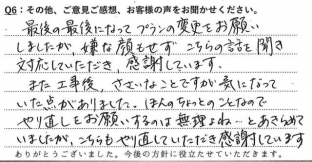 Q6：その他、ご意見ご感想、お客様の声をお聞かせください。
最後の最後になってプランの変更をお願い
しましたが、嫌な顔もせずこちらの話を聞き
対応していただき、感謝しています。
また工事後、ささいなことですが気になって
いた点がありました。ほんのちょっとのことなので
やり直しをお願いするのは無理よね…とあきらめて
いましたが、こちらもやり直していただき感謝しています
ありがとうございました。今後の方針に役立たせていただきます。